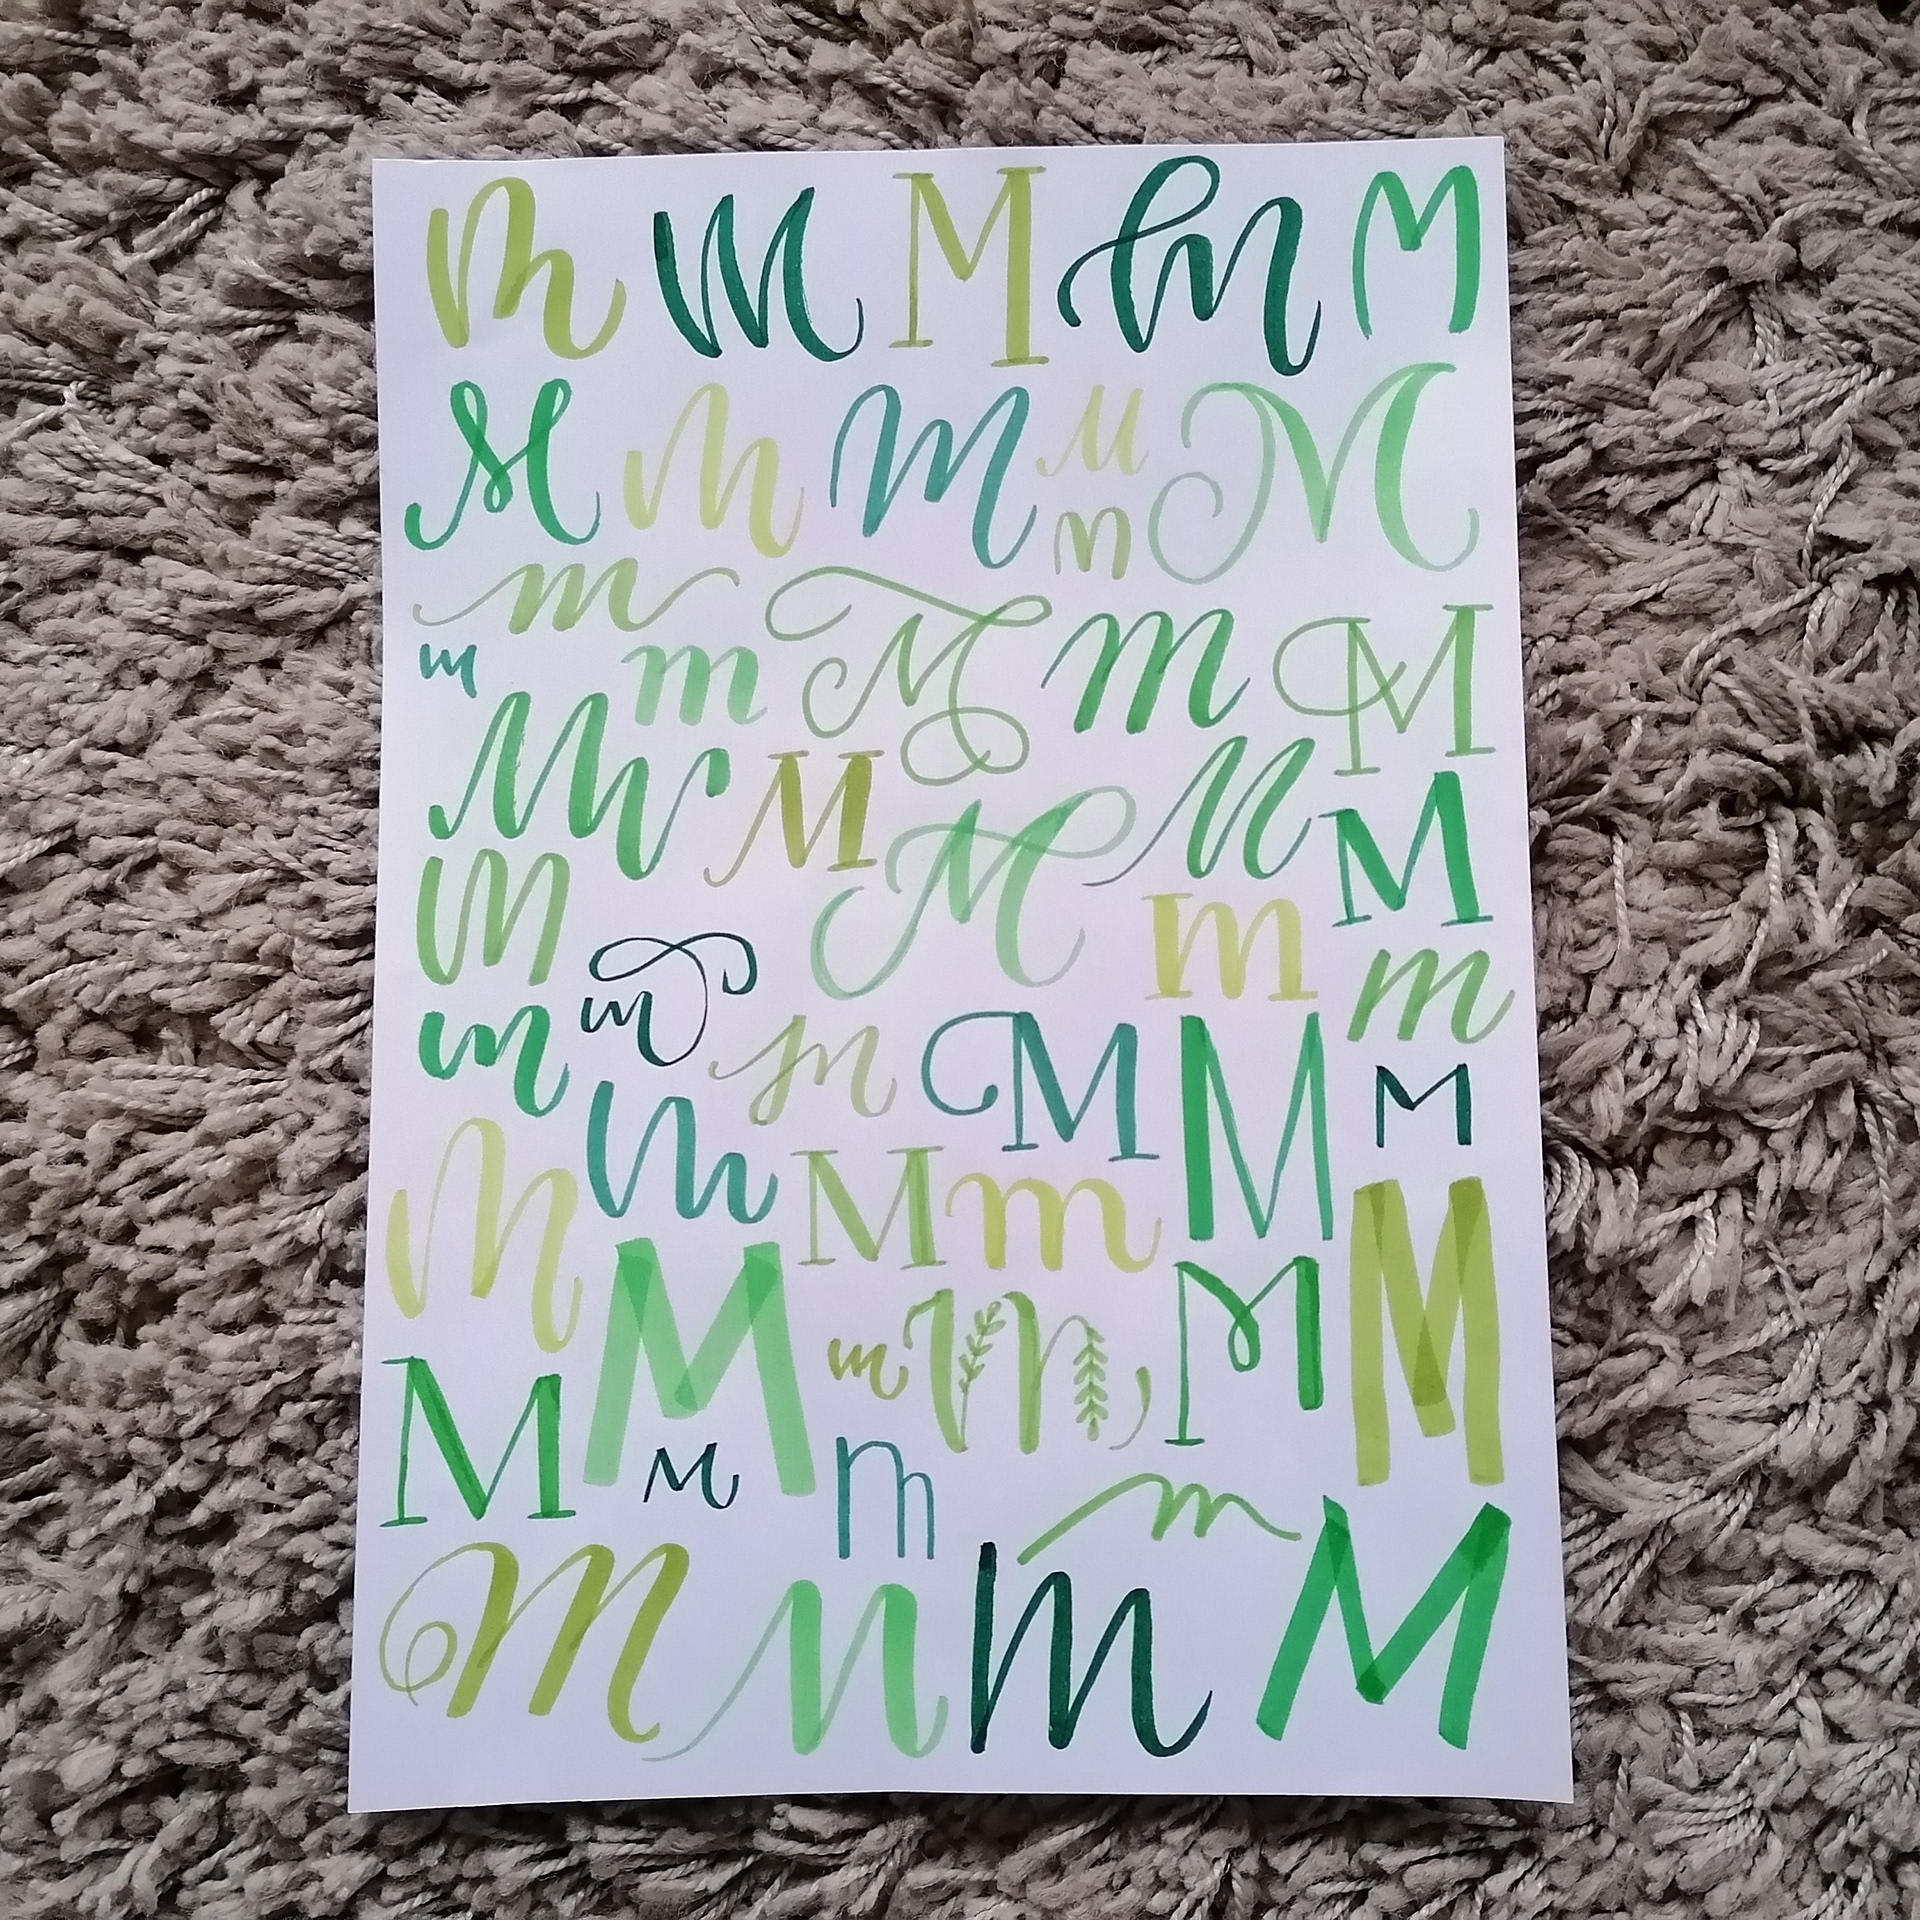 m M M m M
M m M M M
m m
m m M m M
M M M M M
m M m m
m m m M M M
m m M m M
M M m m M
M M m m
m M m M